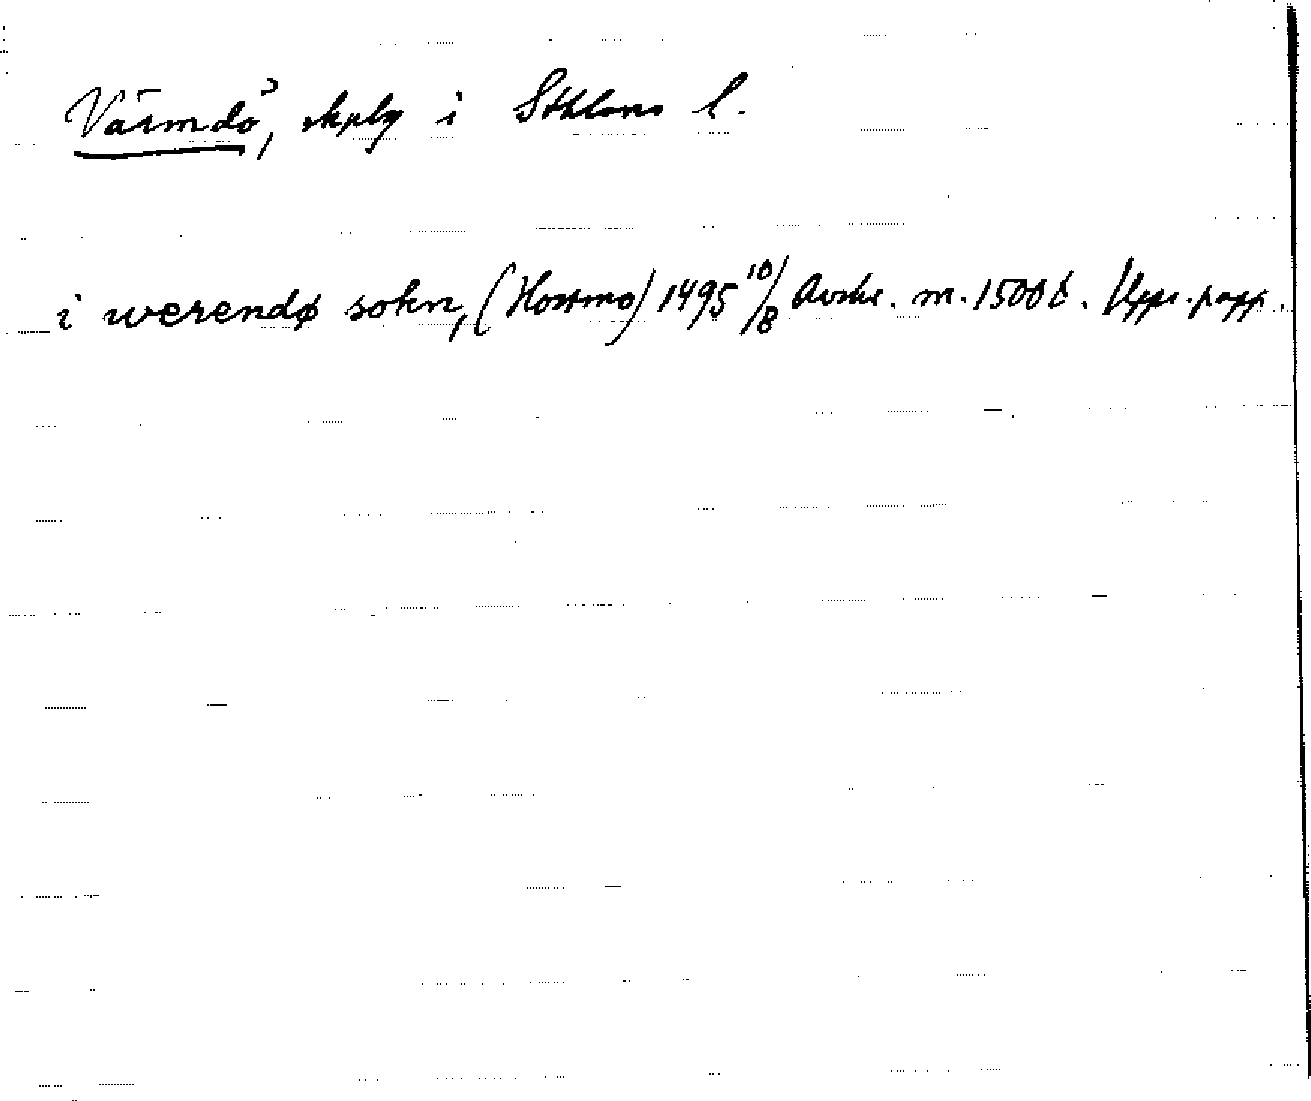 Värmdö, skplg i Sthlms l.
i werendø sokn, (Hostmo) 1495 10/8 Avskr. m. 1500 t. Upps. papp.